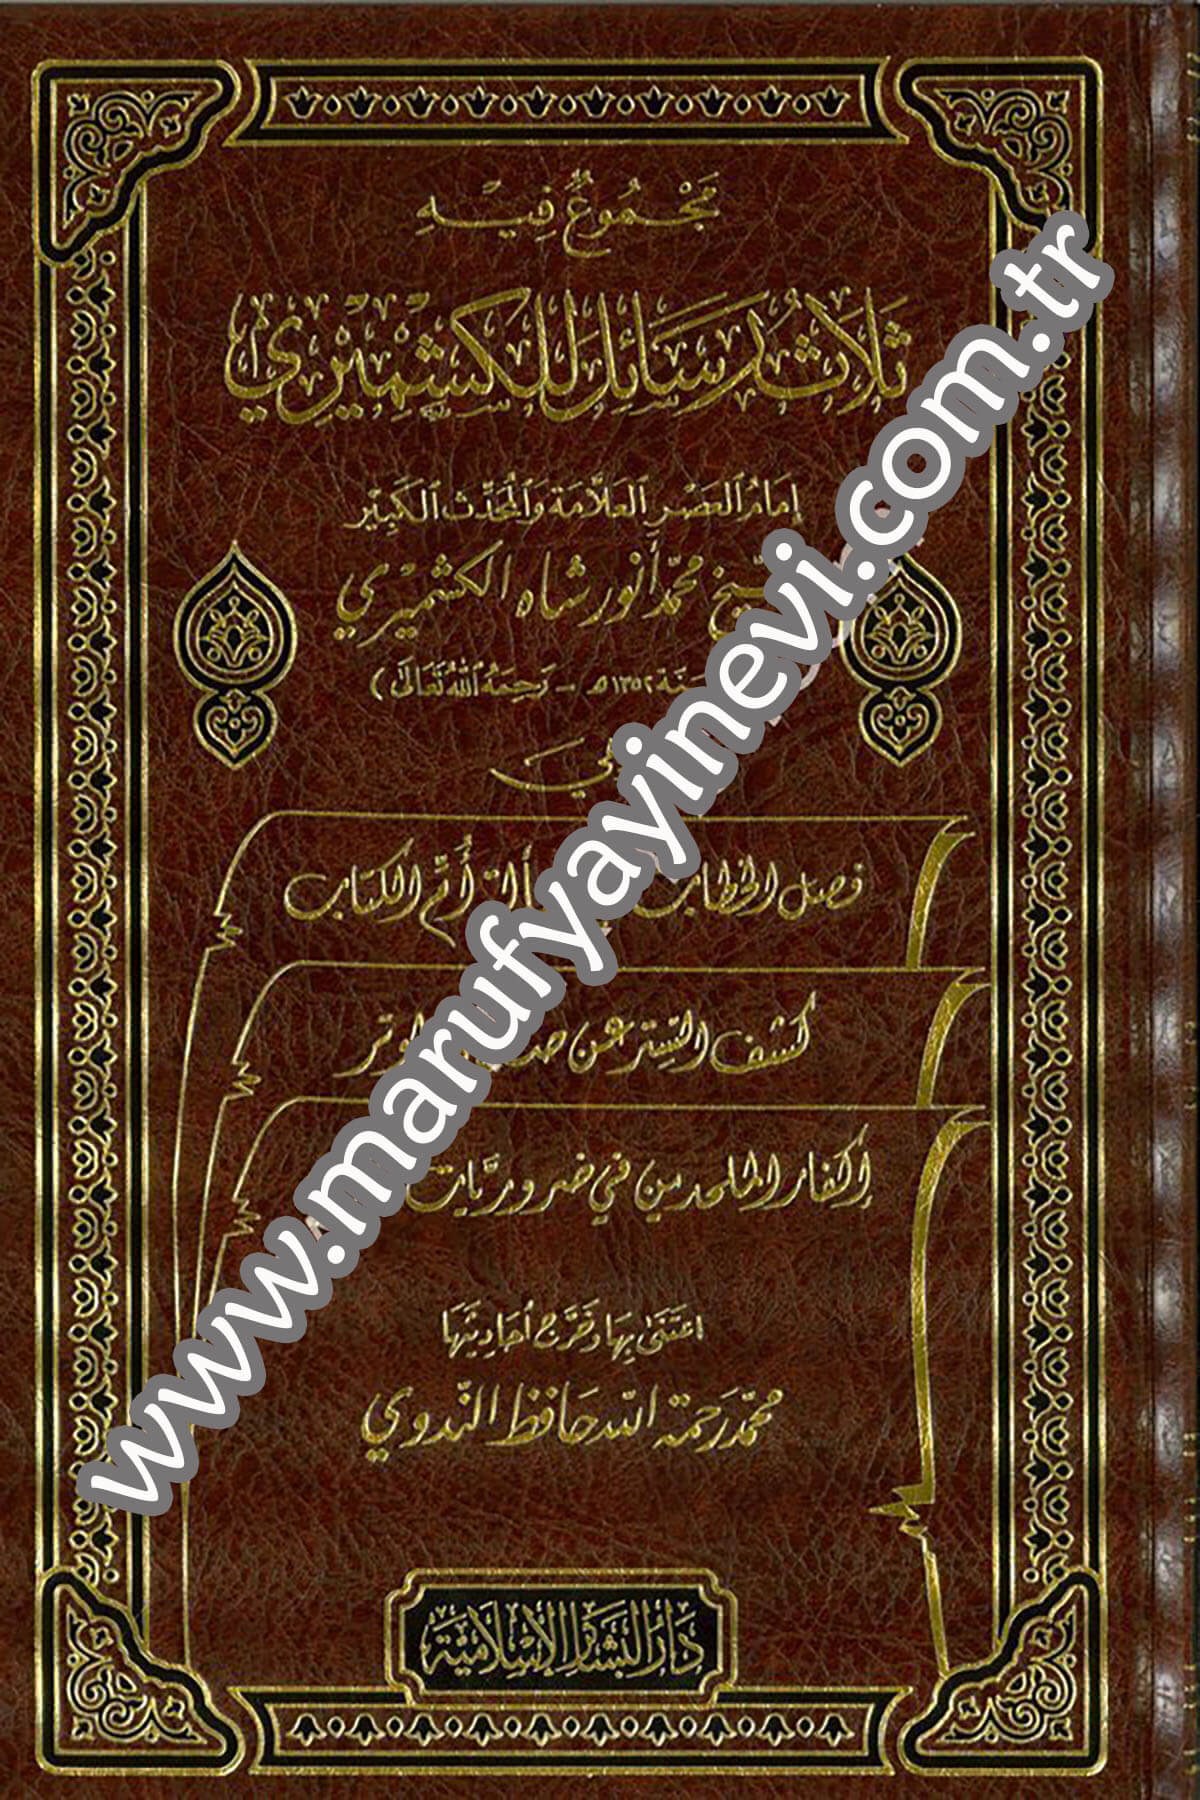 مَجْمُوعٌ فِيْهِ
ثَلَاثُ رَسَائِلَ لِلْكَشْمِيْرِي
إِمَامُ العَصْرِ العَلَّامَةُ وَالمُحَدِّثُ الكَبِيْر
محمّد أنور شاه الكشميري
سَنَة ١٣٥٢ هـ - رَحِمَهُ اللهُ تَعَالَىٰ)
فصل الخطاب أم الكتاب
كشف الستر عن
إكفار الملحدين في ضروريات
اعتَنَىٰ بِهَا وَخَرَّجَ أَحَادِيثَهَا
محمّد رَحمة الله حَافِظ النّدوي
دَارُ البَشَائِرِ الإِسْلَامِيَّة
www.marufyayinevi.com.tr